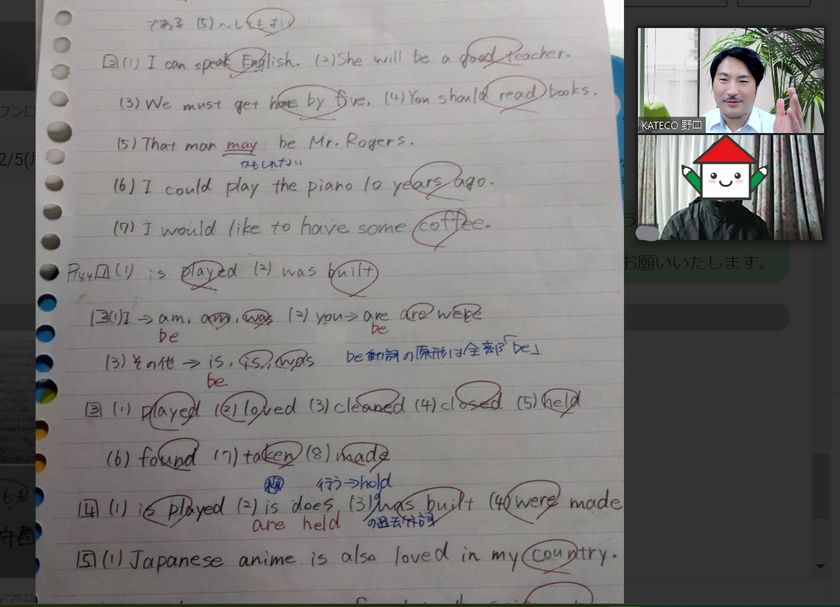 である (5)〜しもよい
2 (1) I can speak English. (2) She will be a good teacher.
(3) We must get home by five. (4) You should read books.
(5) That man may be Mr. Rogers.
かもしれない
(6) I could play the piano 10 years ago.
(7) I would like to have some coffee.
P.44 1 (1) is played (2) was built
(1) I → am, am, was (2) you → are are were
be be
(3) その他 → is, is, was be動詞の原形は全部「be」
be
3 (1) played (2) loved (3) cleaned (4) closed (5) held
(6) found (7) taken (8) made
行う→hold
4 (1) is played (2) is does, (3) was built (4) were made
are held の過去分詞
5 (1) Japanese anime is also loved in my country.
KATECO 野口
2/5(
お願いいたします。